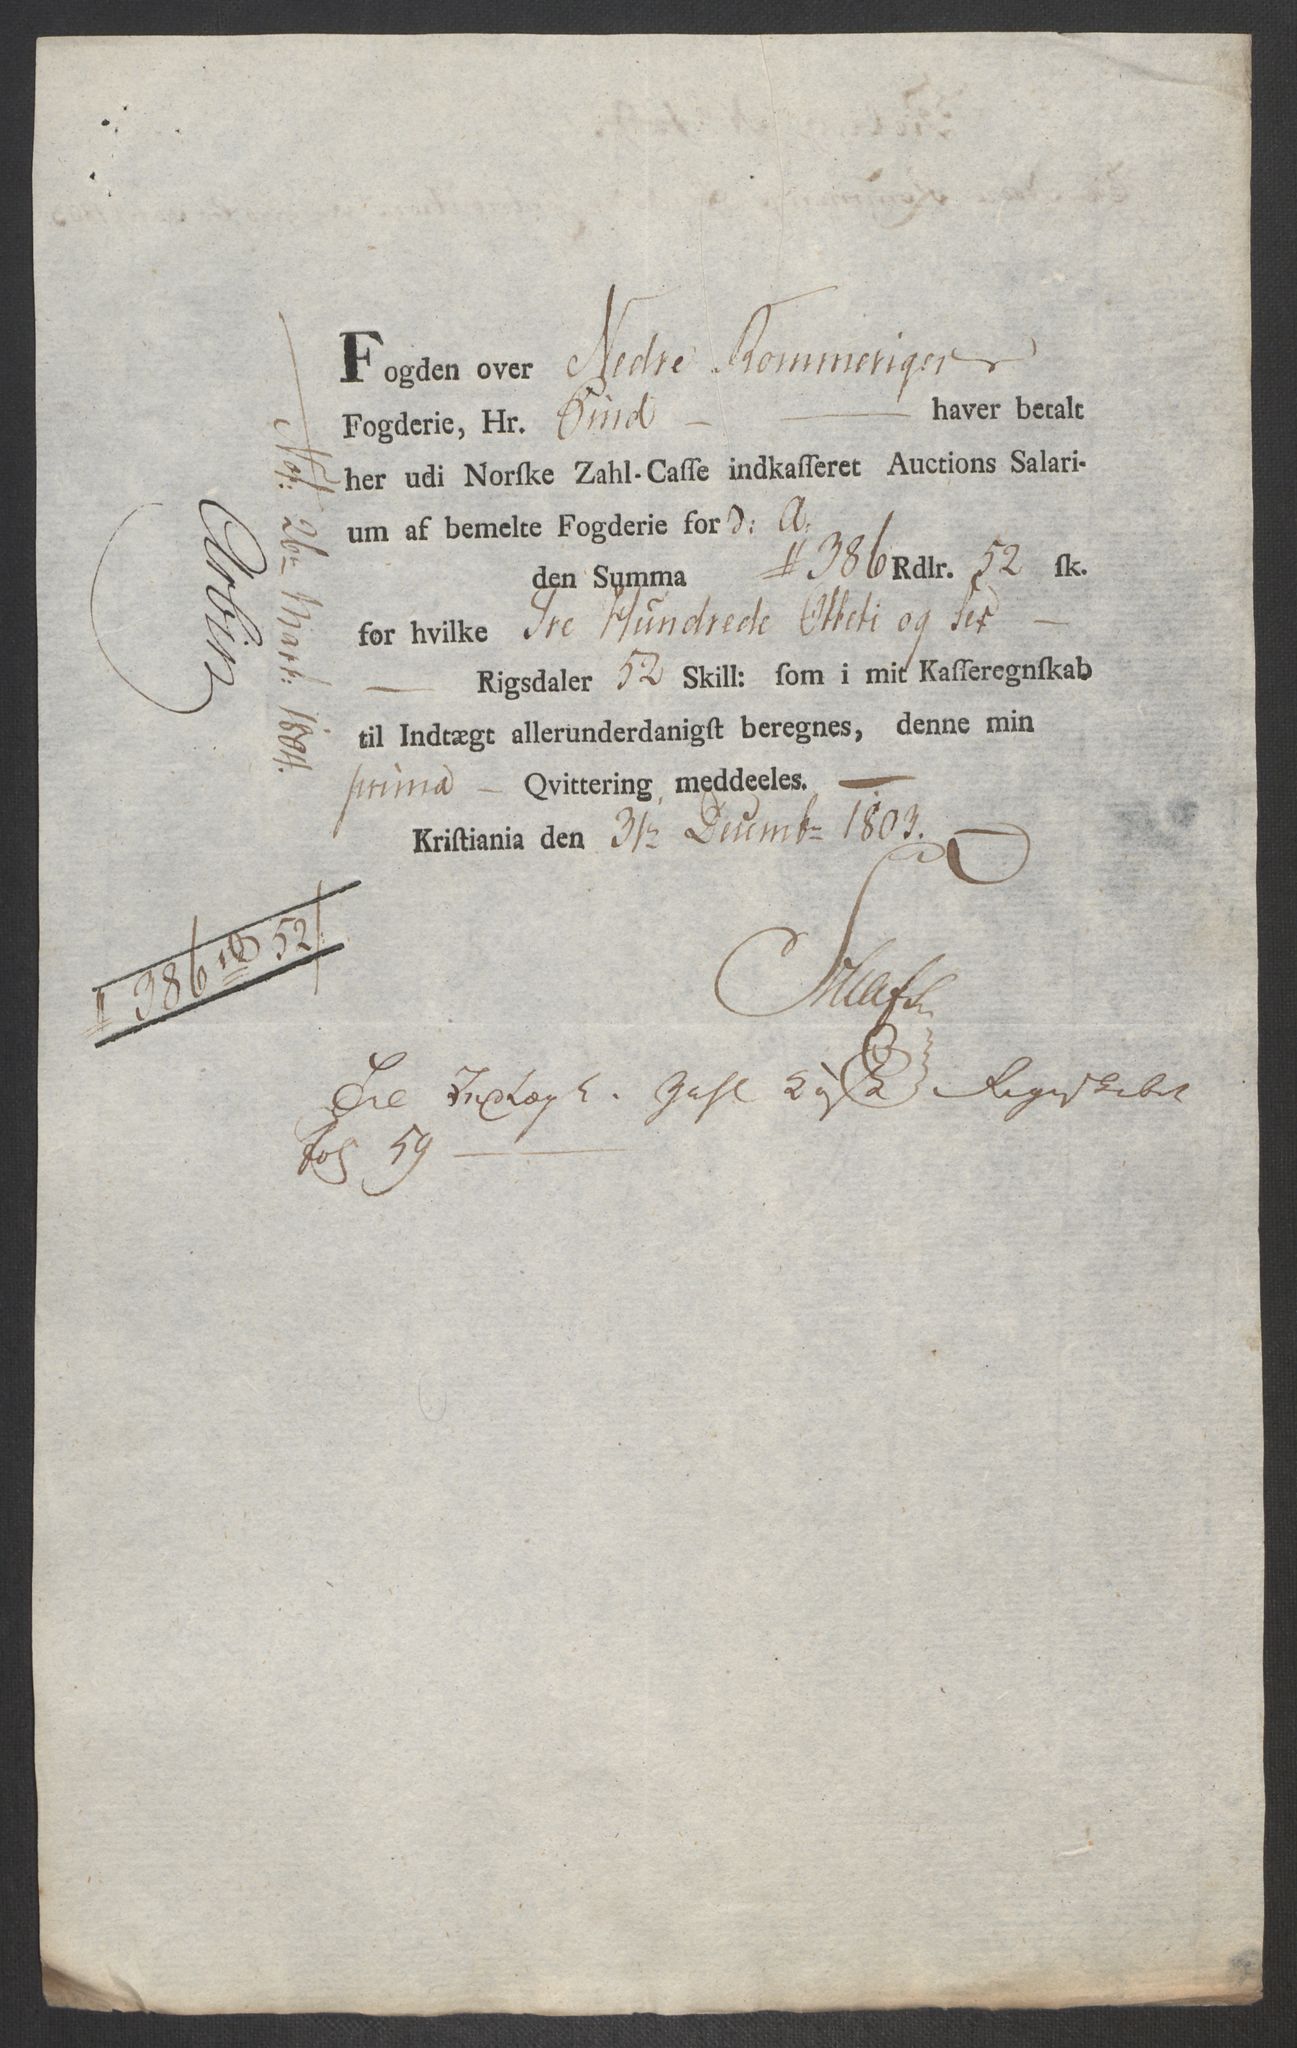 Fogden over Nedre Rommeriger
Fogderie, Hr. haver betalt
her udi Norſke Zahl-Caſſe indkaſſeret Auctions Salari-
um af bemelte Fogderie for d: A.
den Summa 386 Rdlr. 52 ſk.
før hvilke Tre Hundrede Otteti og Sex —
— Rigsdaler 52 Skill: ſom i mit Kaſſeregnſkab
til Indtægt allerunderdanigſt beregnes, denne min
prima — Qvittering meddeeles. —
Kriſtiania den 31 Decembr 1803.
Not: 26 Mart: 1804.
386 rd 52
Regnskabet
Fol 59 —